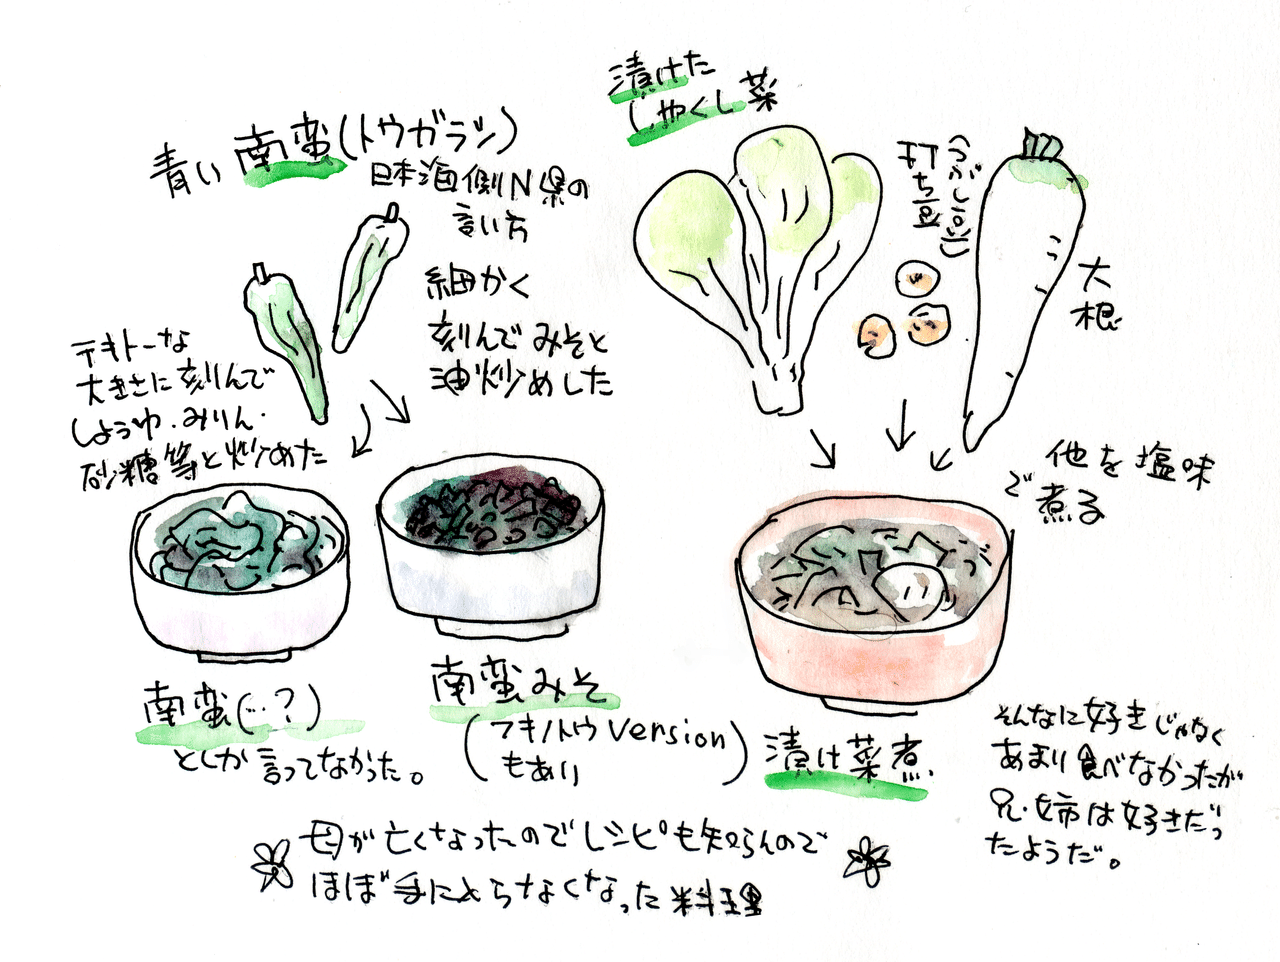 青い南蛮(トウガラシ)
日本海側N県の
言い方
細かく
刻んでみそと
油炒めした
テキトーな
大きさに刻んで
しょうゆ・みりん・
砂糖等と炒めた
南蛮(…?)
としか言ってなかった。
南蛮みそ
(フキノトウversion
もあり)
漬けた
しゃくし菜
打ち豆
(つぶし豆)
大根
他を塩味
で煮る
漬け菜煮
そんなに好きじゃなく
あまり食べなかったが
兄・姉は好きだっ
たようだ。
母が亡くなったのでレシピも知らんので
ほぼ手にとらなくなった料理